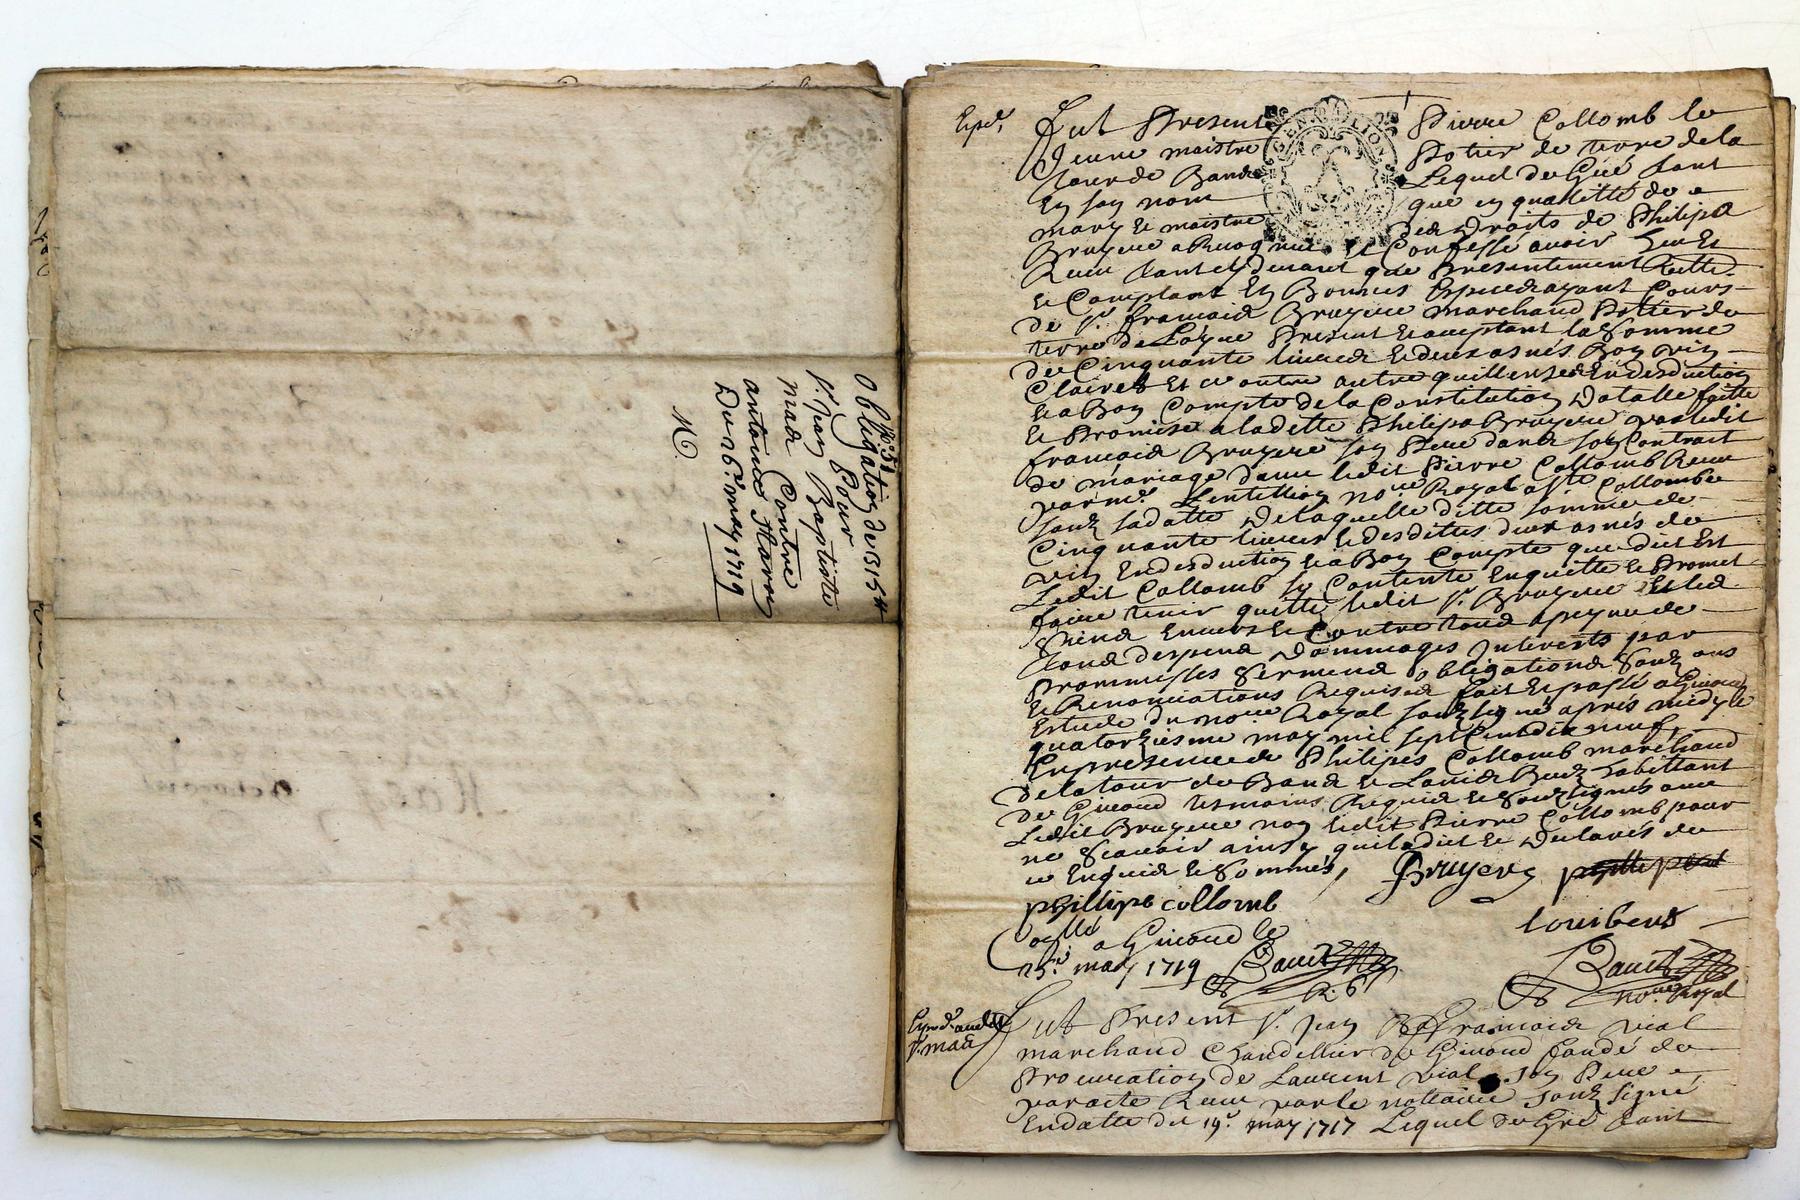 Obligation de 315 tt
Pour
Sr Jean Baptiste
Mada Contre
antoine
Du 26e may 1719
Exped.
Fut Present Pierre Collomb le
Jeune maistre Potier de terre de la
tour de Bande Lequel de Gré tant
En son nom que en qualitté de
mary & maistre des droits de Philipa
Bruyere a Recognu & Confessé avoir heu Et
Receu tant cy devant que Presentement
& Comptant En Bonnes Especes ayant Cours
de Sr francois Bruyere marchand Potier de
terre de Present & acceptant la Somme
de Cinquante livres & deux asnés Bon vin
Clairet Et ce outre autre quittances En desduction
& a Bon Compte de la Constitution dotalle faitte
& Promise a ladette Philipa Bruyere par ledit
francois Bruyere son Pere dans son Contrait
de mariage d'avec ledit Pierre Collomb Receu
par me. nore Royal a Ste Collombe
souz sa datte de laquelle ditte somme de
Cinquante livres & desdites deux asnés de
vin En desduction & a Bon Compte que dict Est
Ledit Collomb se Contente Enquitte & Promet
faire tenir quitte ledit Sr Bruyere Et les
Siens Envers & Contre tous a peyne de
tous despens dommages Interests par
Prommisses Serment obligations Souz
& Renonciations Requises fait & passé a Givord
Estude du nore Royal souzsigné apres midy le
quatorziesme may mil sept Cent dix neuf,
En presence de Philipes Collomb marchand
de la tour de Bande & Louis Berd habittant
de Givord tesmoins Requis & Souzsignés avec
Ledit Bruyere non ledit Pierre Collomb pour
ne Scavoir ainsy quil a dict & declaré de
ce Enquis & Sommés, Bruyere
phillipe collomb
louis berd
Collé a Givord le
25e. may 1719
nore Royal
Fut Present Sr Jean francois vial
marchand Chandellier de Givord fondé de
Procuration de Laurent vial son Pere
par acte Receu par le nottaire souz signé
En datte du 19e. may 1717 Lequel de Gré tant